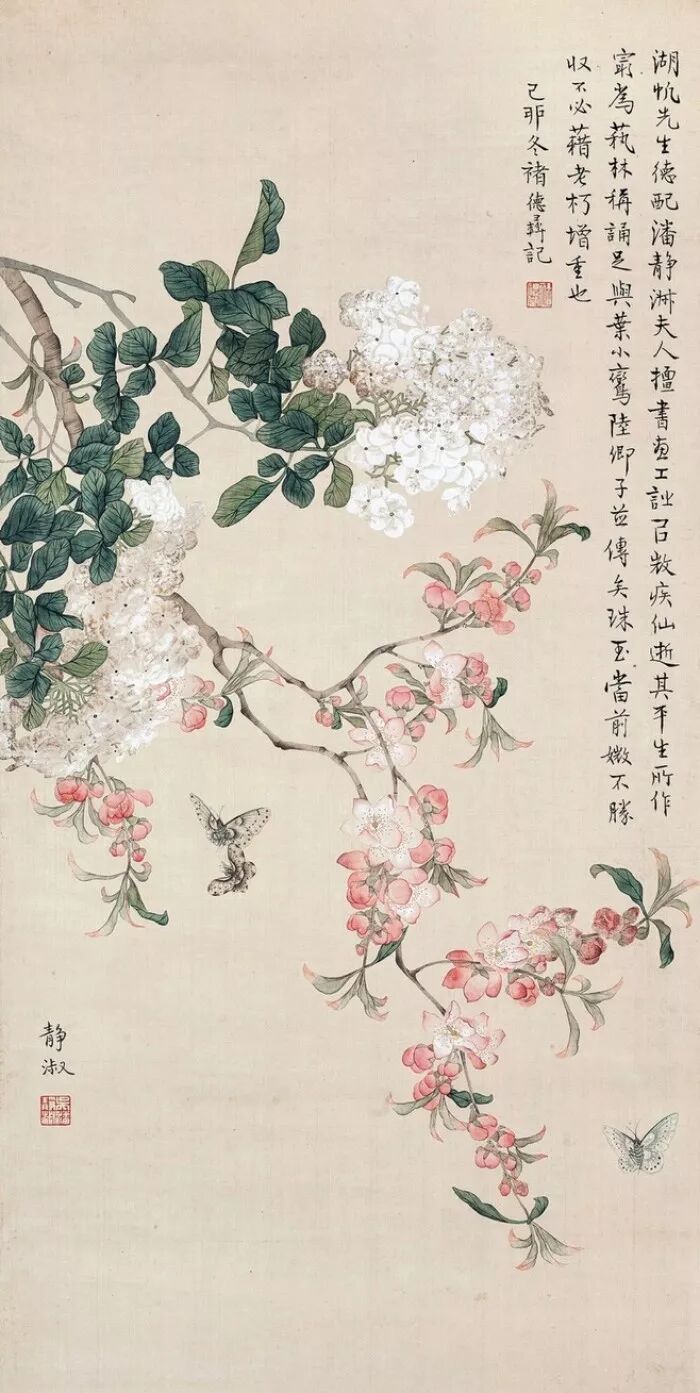 湖帆先生德配潘静淑夫人擅書画工詞召数疾仙逝其平生所作
寔為蓺林稱誦足與葉小鸞陸卿子並傳矣珠玉當前媺不勝
収不必藉老朽增重也
己卯冬褚德彝記
静
淑